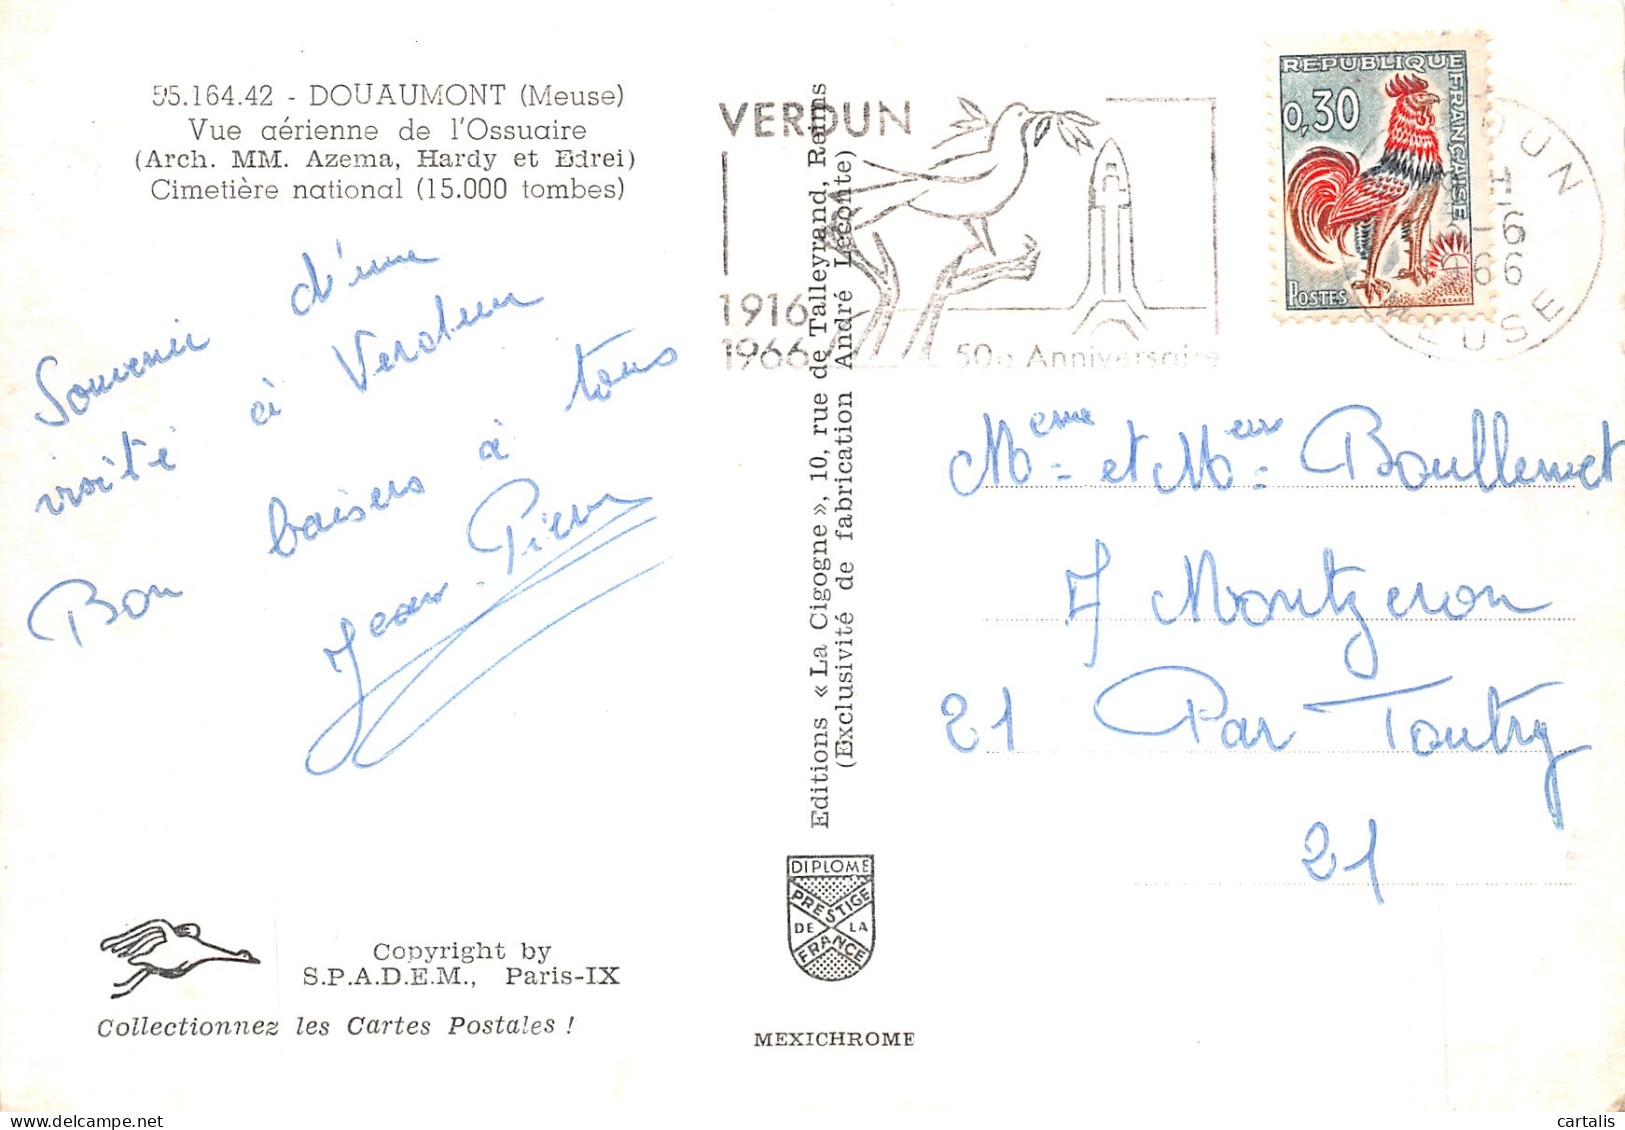 55.164.42 - DOUAUMONT (Meuse)
Vue aérienne de l'Ossuaire
(Arch. MM. Azema, Hardy et Edrei)
Cimetière national (15.000 tombes)
Souvenir d'une
visite à Verdun
Bon baisers à tous
Jean-Pierre
Copyright by
S.P.A.D.E.M., Paris-IX
Collectionnez les Cartes Postales !
Editions « La Cigogne », 10, rue de Talleyrand, Reims
(Exclusivité de fabrication André Leconte)
DIPLOME
PRESTIGE
DE LA
FRANCE
MEXICHROME
VERDUN
1916
1966
50e Anniversaire
REPUBLIQUE FRANÇAISE
0,30
POSTES
DECARIS
MEUSE
Mème et Meur Boullemet
7 Montzeron
21 Par Toutry
21
cartalis